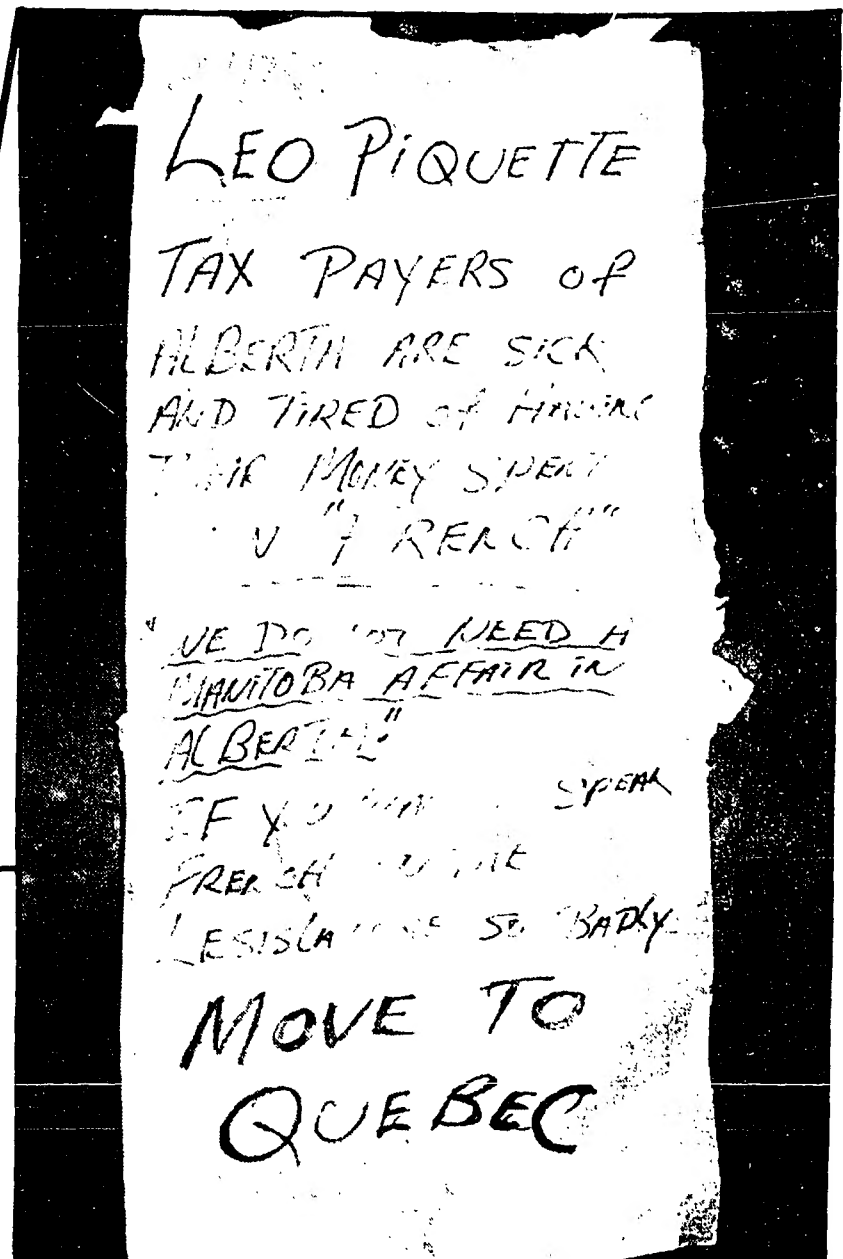 LEO PIQUETTE
TAX PAYERS of
ALBERTA ARE SICK
AND TIRED of HAVING
THEIR MONEY SPENT
"FRENCH"
"WE DO NOT NEED A
MANITOBA AFFAIR IN
ALBERTA."
IF YOU SPEAK
FRENCH THE
LEGISLATURE SO BADLY
MOVE TO
QUEBEC